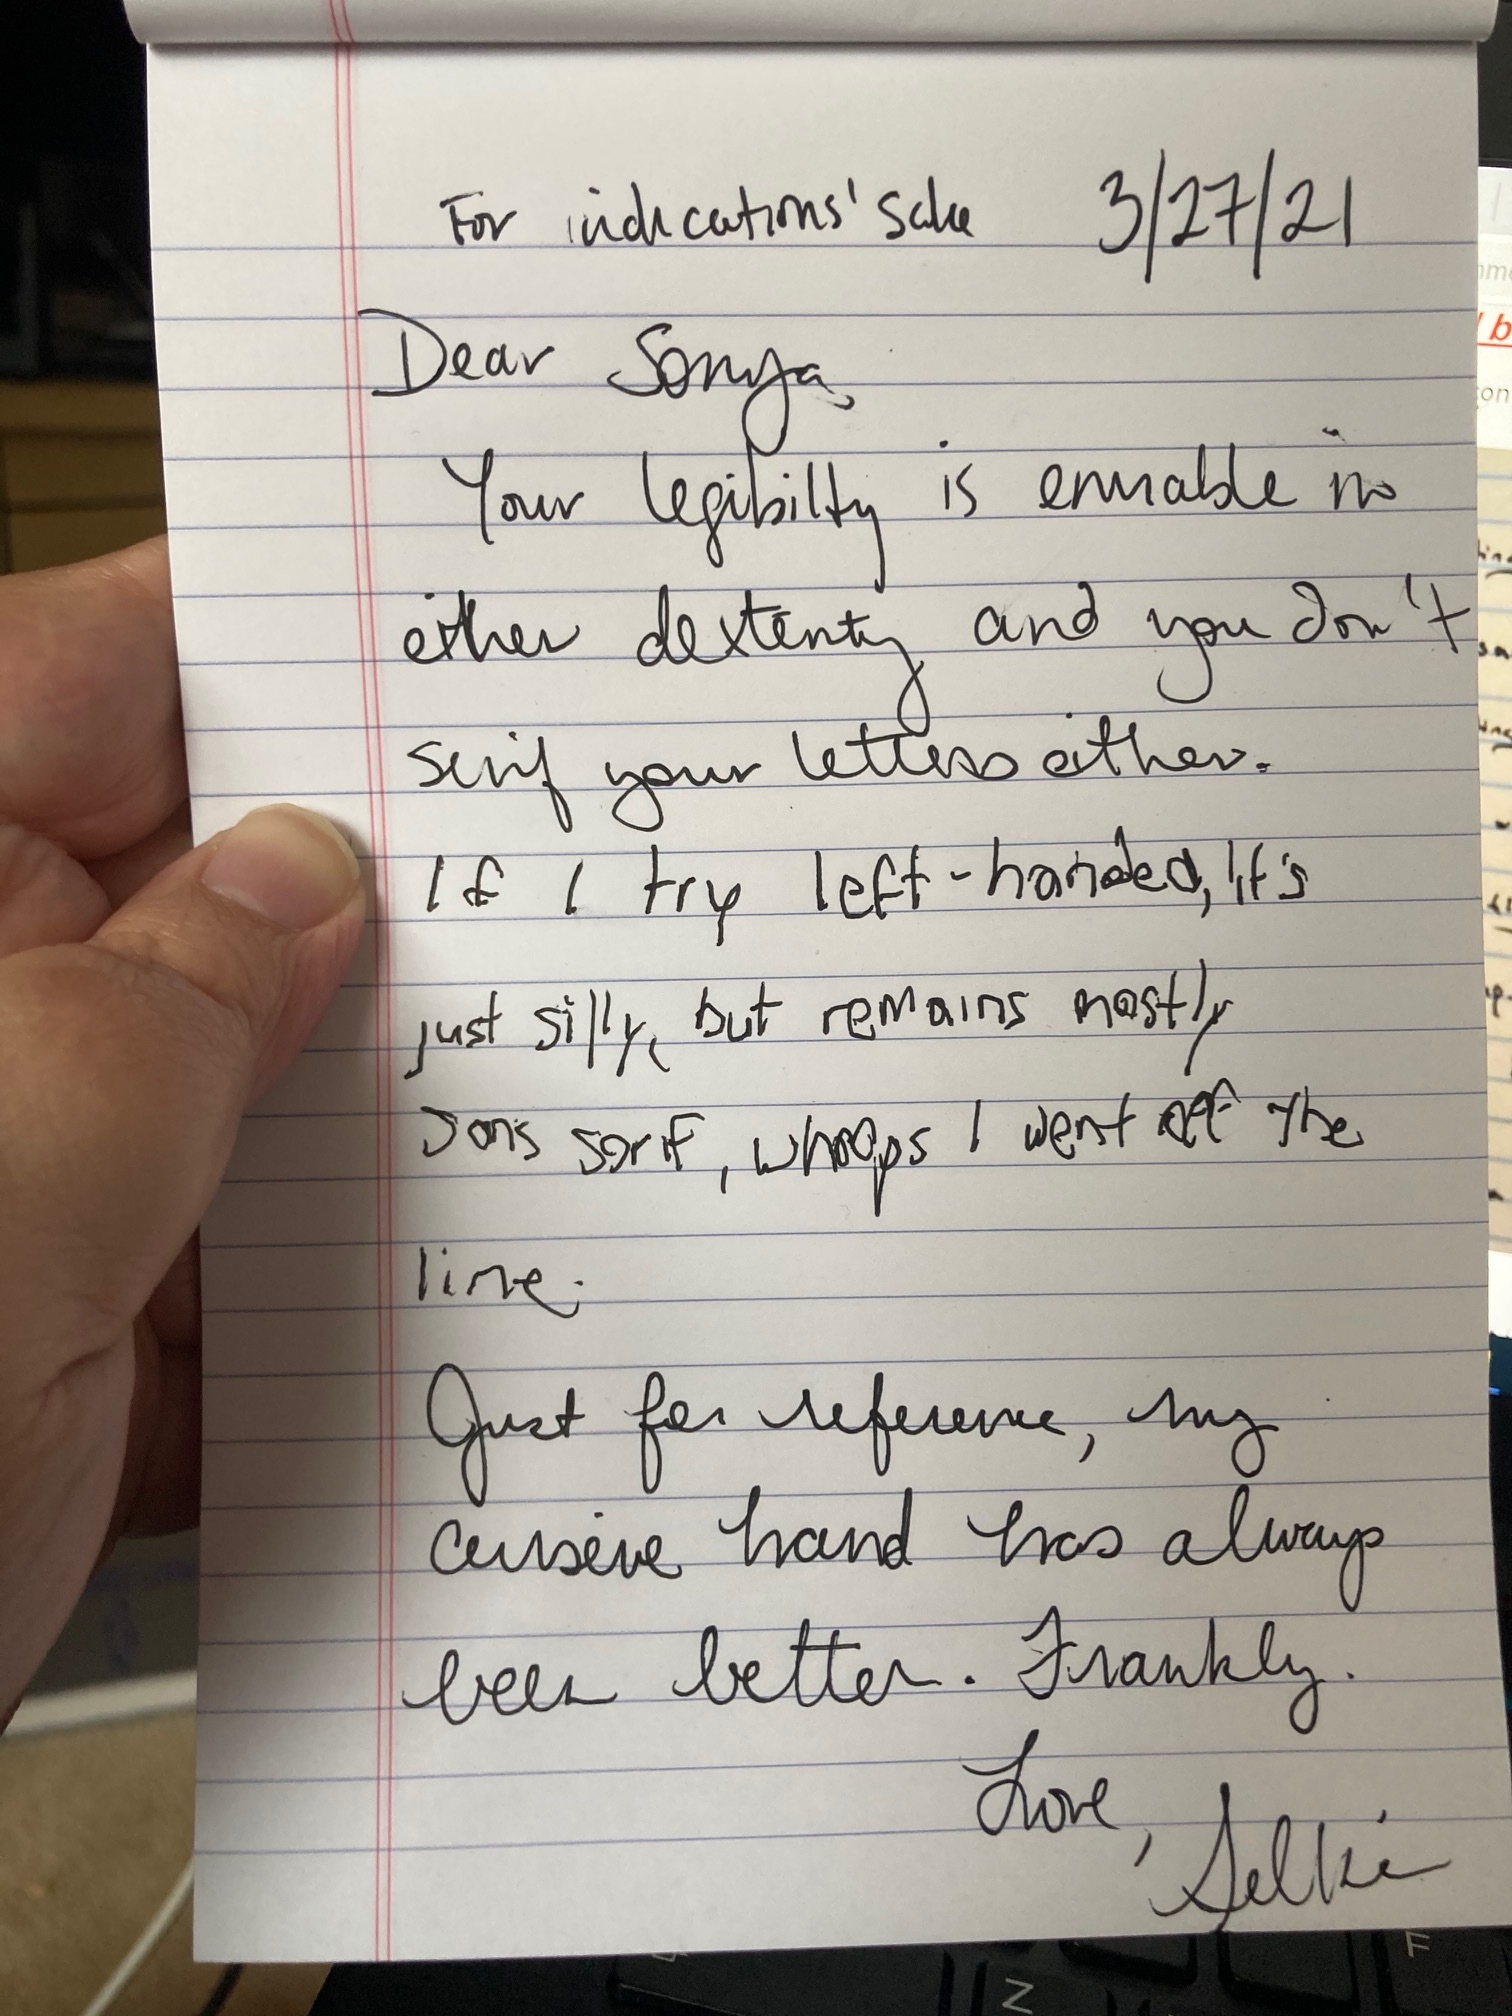 For indications' sake 3/27/21
Dear Sonya,
Your legibilty is enviable in
either dexterity and you don't
serif your letters either.
If I try left-handed, it's
just silly, but remains mostly
sans serif, whoops I went off the
line.
Just for reference, my
cursive hand has always
been better. Frankly.
Love,
Selkie
Z
F